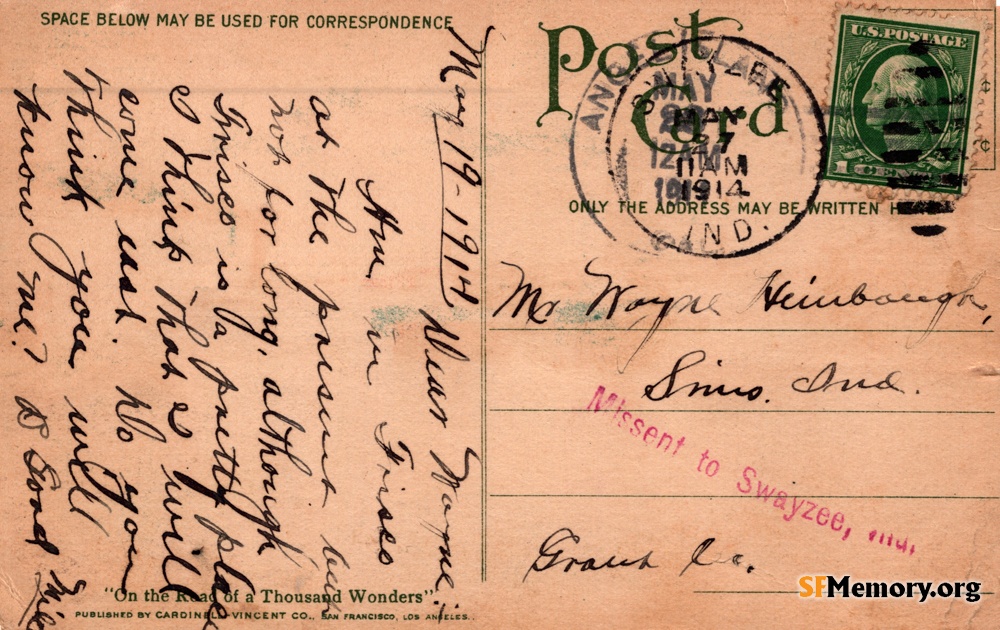 SPACE BELOW MAY BE USED FOR CORRESPONDENCE
May 19-1914
Dear Wayne:
Am in Frisco
at the present but
not for long, although
Frisco is a pretty place
I think that I will
come east. Do you
think you will
know me?
Post
Card
U.S. POSTAGE
1 CENT
MAY
27
11 AM
1914
IND.
ONLY THE ADDRESS MAY BE WRITTEN H
Mr Wayne Heinbaugh,
Sims. Ind.
Missent to Swayzee, Ind.
Grant Co.
"On the Road of a Thousand Wonders"
PUBLISHED BY CARDINELL-VINCENT CO., SAN FRANCISCO, LOS ANGELES.
SFMemory.org